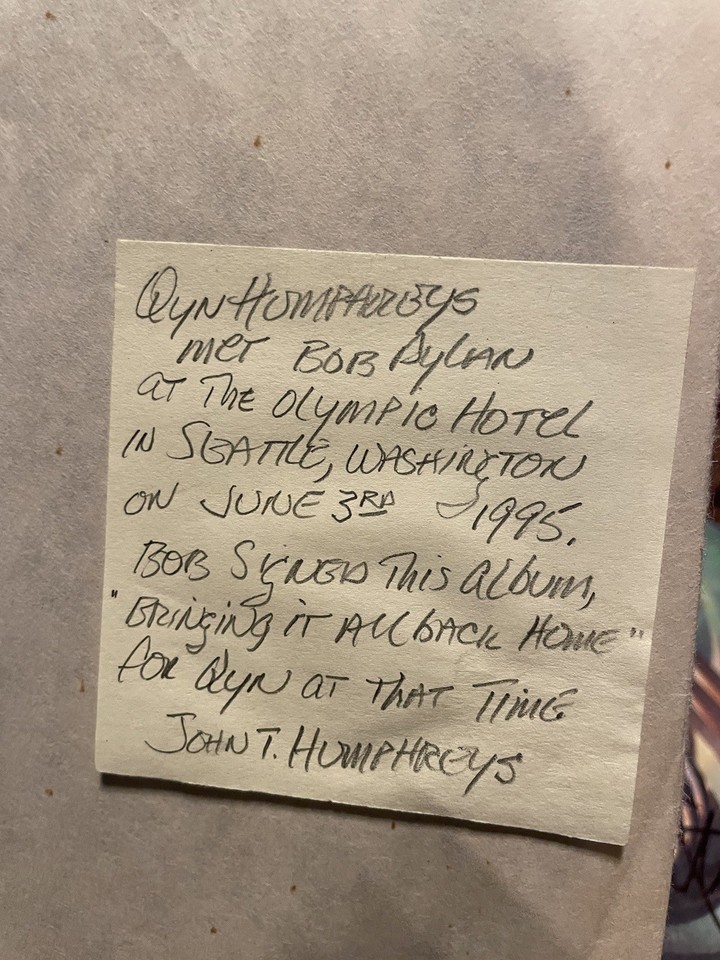 Qyn Humphreys
met Bob Dylan
at the Olympic Hotel
in Seattle, Washington
on June 3rd 1995.
Bob signed this album,
"Bringing it all back Home"
for Qyn at that time
John T. Humphreys